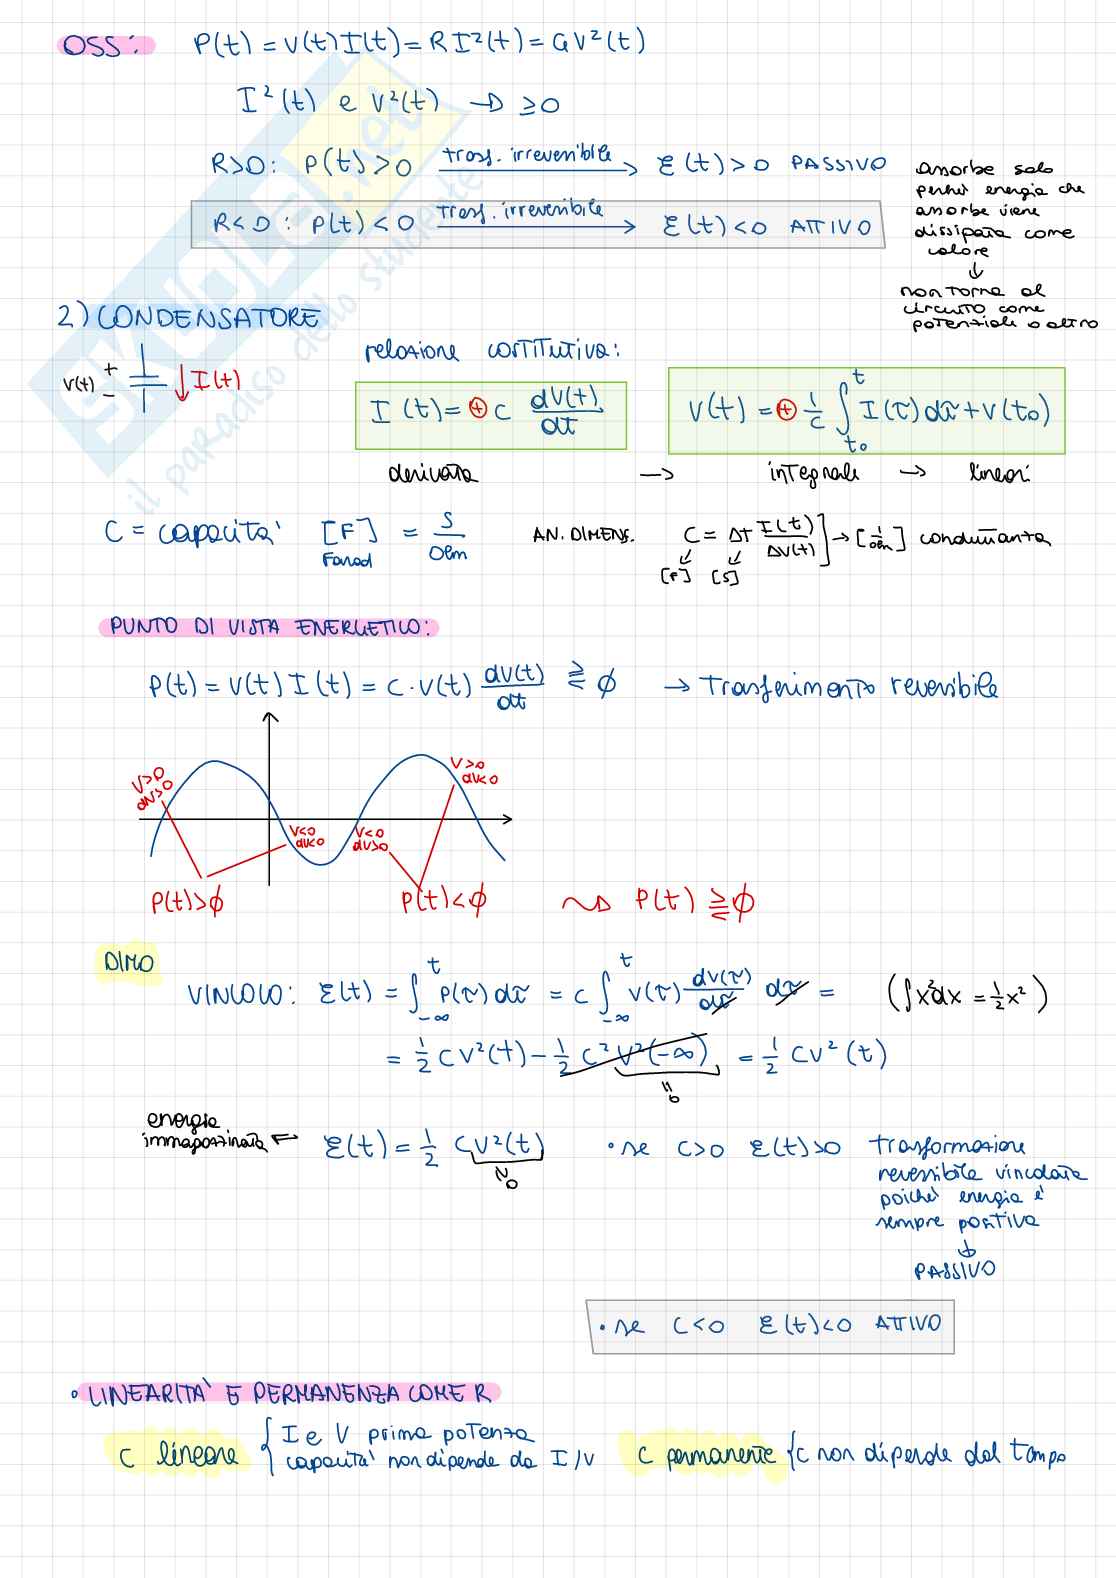 OSS: P(t) = V(t) I(t) = R I²(t) = G V²(t)
I²(t) e V²(t) → ≥0
R>0: P(t)>0 trasf. irreversibile → ℰ(t)>0 PASSIVO
R<0: P(t)<0 trasf. irreversibile → ℰ(t)<0 ATTIVO
assorbe solo
perché energia che
assorbe viene
dissipata come
calore
↓
non torna al
circuito come
potenziale o altro
2) CONDENSATORE
V(t) + - ↓ I(t)
relazione costitutiva:
I(t) = ⊕ C dV(t)/dt
V(t) = ⊕ 1/C ∫_{t₀}^{t} I(τ)dτ + V(t₀)
derivata → integrale → lineari
C = capacità [F] = S/Ohm
Farad
AN. DIMENS. C = ΔT I(t)/ΔV(t)] → [1/Ohm] conduttanza
[F] [S]
PUNTO DI VISTA ENERGETICO:
P(t) = V(t) I(t) = C · V(t) dV(t)/dt ⪌ ϕ → Trasferimento reversibile
V>0
dV>0
V<0
dV<0
V<0
dV>0
V>0
dV<0
P(t)>ϕ P(t)<ϕ ⇝ P(t) ⪌ ϕ
DIMO
VINCOLO: ℰ(t) = ∫_{-∞}^{t} P(τ)dτ = C ∫_{-∞}^{t} V(τ) dV(τ)/dτ dτ = (∫x²dx = 1/2 x²)
= 1/2 C V²(t) - 1/2 C² V²(-∞) = 1/2 C V²(t)
=0
energia
immagazzinata ← ℰ(t) = 1/2 C V²(t)
≥0
• se C>0 ℰ(t)>0 trasformazione
reversibile vincolata
poiché energia è
sempre positiva
↓
PASSIVO
• se C<0 ℰ(t)<0 ATTIVO
• LINEARITÀ E PERMANENZA COME R
C lineare { I e V prima potenza
capacità non dipende da I/V
C permanente { C non dipende dal tempo
SKUOLA.net
il paradiso dello studente